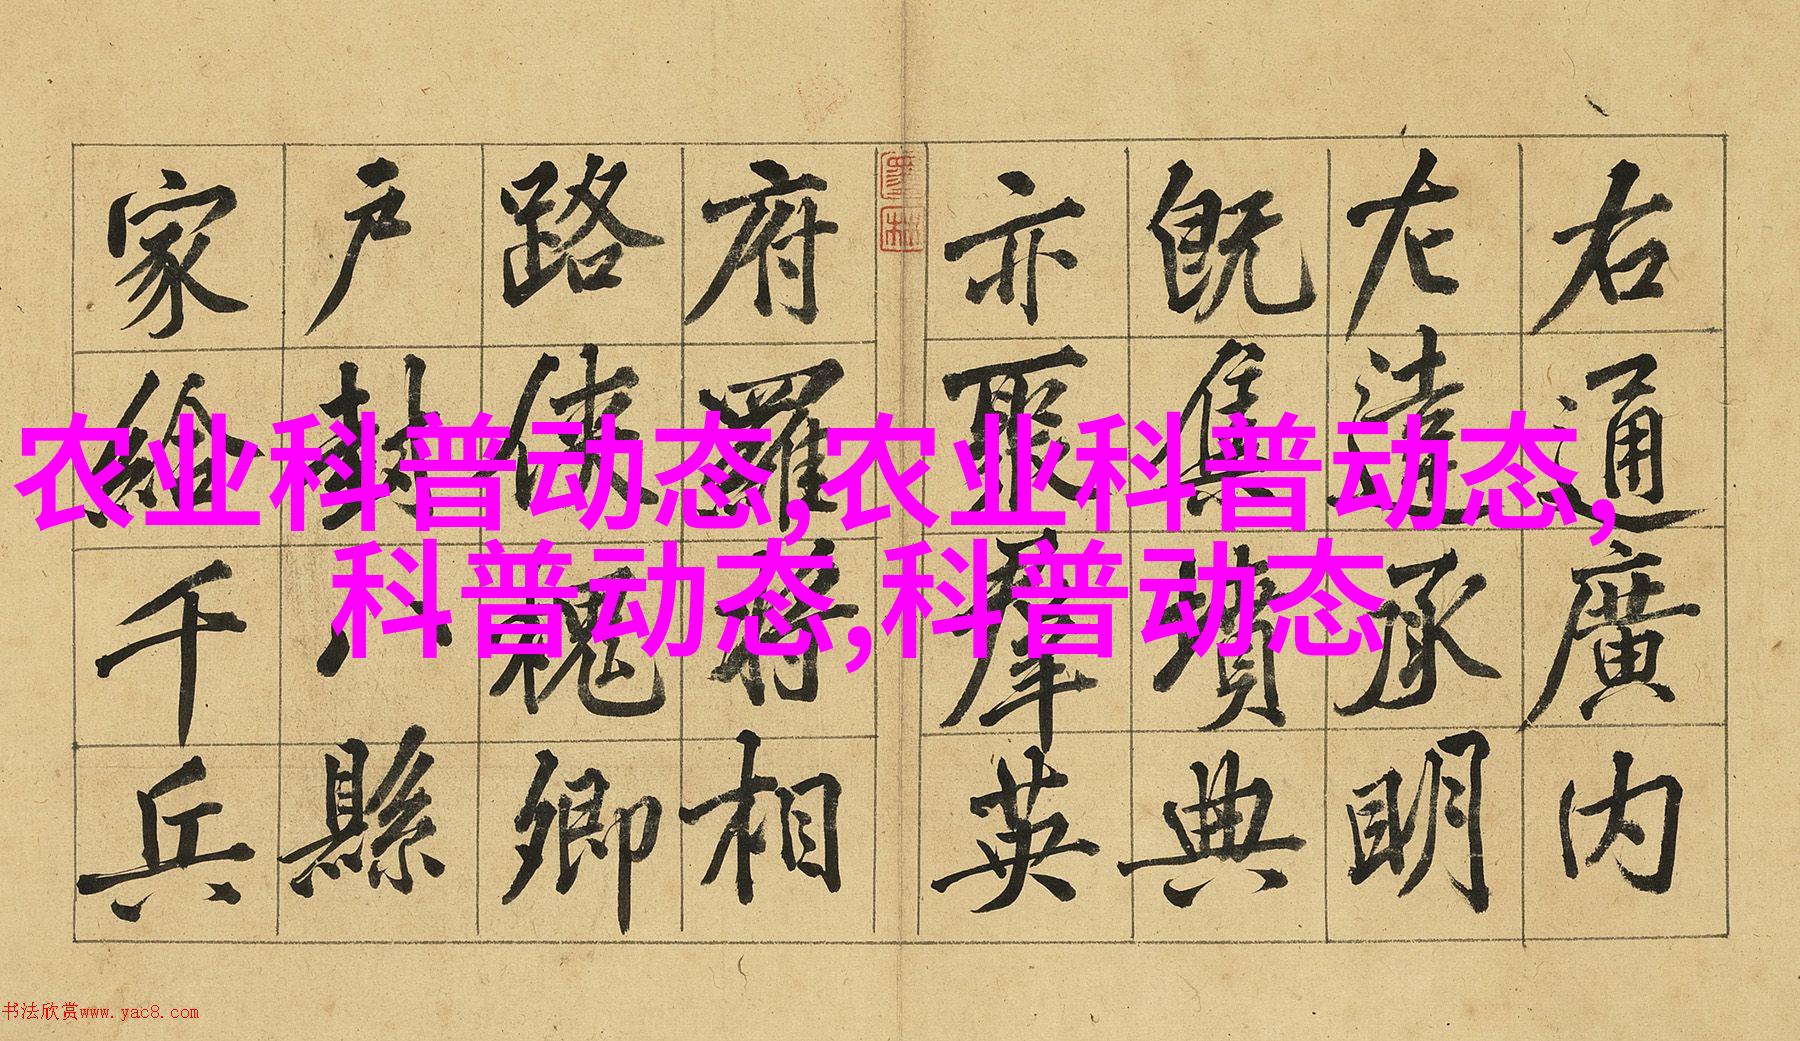 农业科普动态,农业科普动态,
科普动态,科普动态
右通廣内
左達承明
既集墳典
亦聚羣英
府羅將相
路俠槐卿
户封八縣
家給千兵
书法欣赏www.yac8.com